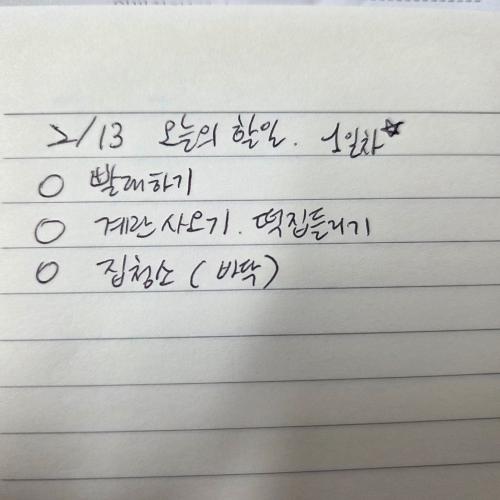 2/13 오늘의 할일. 1일차☆
○ 빨래하기
○ 계란 사오기. 떡집들리기
○ 집청소 (바닥)